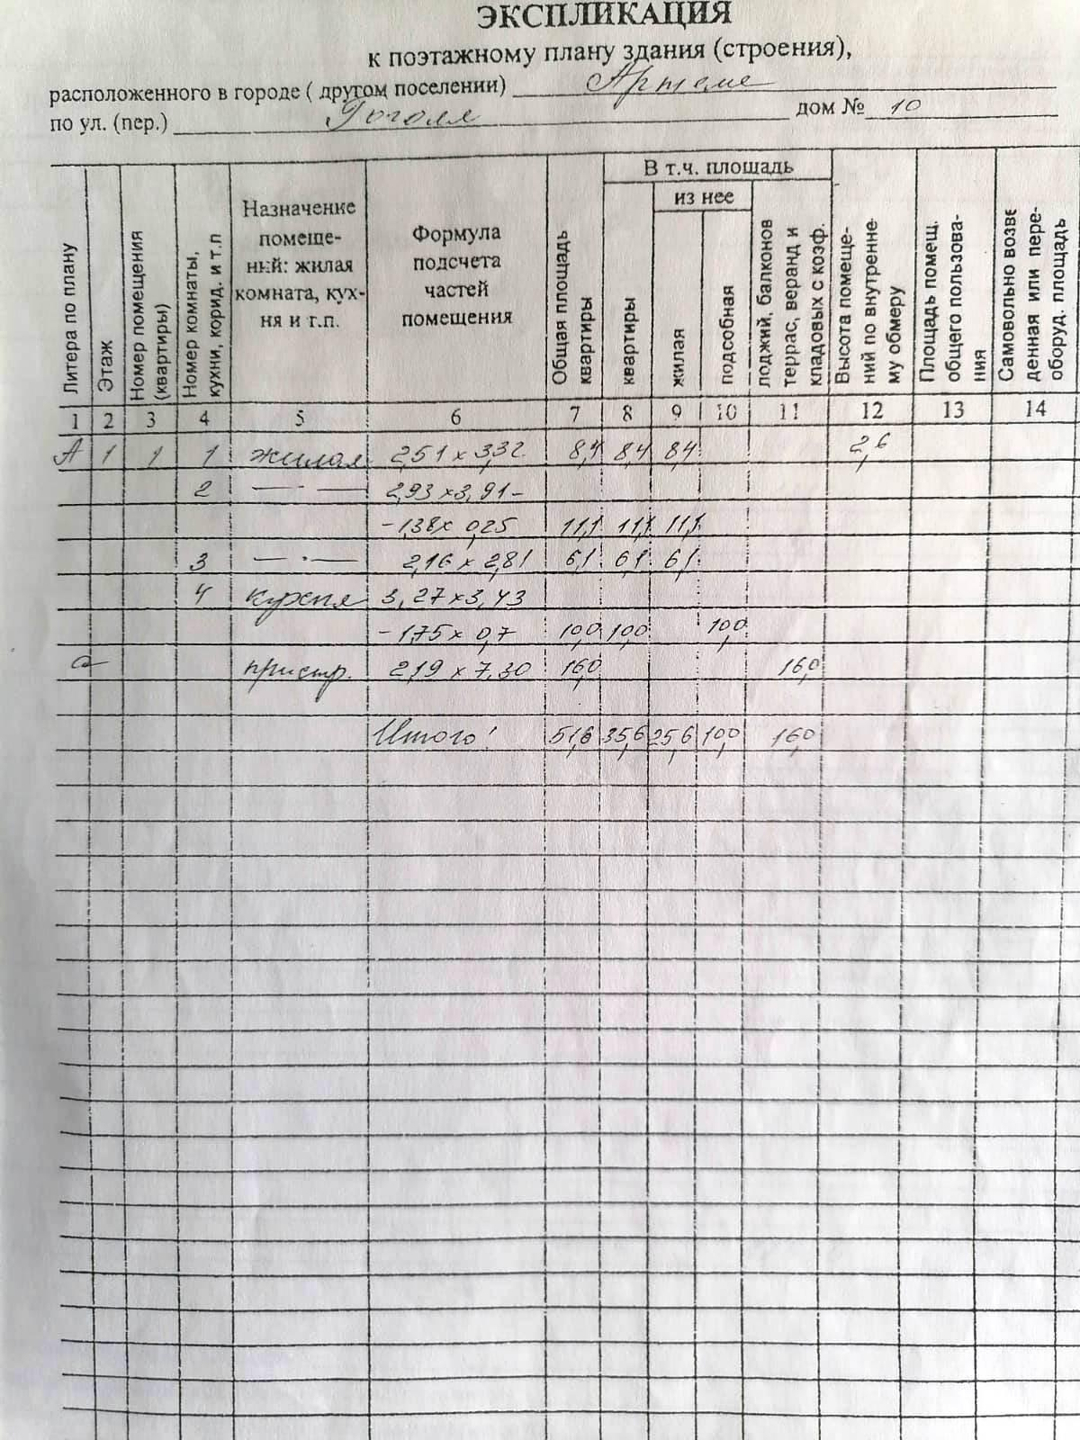 ЭКСПЛИКАЦИЯ
к поэтажному плану здания (строения),
расположенного в городе ( другом поселении) Артеме
по ул. (пер.) Гоголя дом № 10
Литера по плану
Этаж
Номер помещения (квартиры)
Номер комнаты, кухни, корид. и т.п
Назначение помеще-
ний: жилая
комната, кух-
ня и т.п.
Формула
подсчета
частей
помещения
Общая площадь квартиры
В т.ч. площадь
квартиры
из нее
жилая
подсобная
лоджий, балконов террас, веранд и кладовых с коэф.
Высота помеще-
ний по внутренне-
му обмеру
Площадь помещ.
общего пользова-
ния
Самовольно возве
денная или пере-
оборуд. площадь
1 2 3 4 5 6 7 8 9 10 11 12 13 14
А 1 1 1 жилая 2,51 x 3,32 8,4 8,4 8,4 2,6
2 — · — 2,93 x 3,91 -
- 1,38 x 0,25 11,1 11,1 11,1
3 — · — 2,16 x 2,81 6,1 6,1 6,1
4 кухня 3,27 x 3,43
- 1,75 x 0,7 10,0 10,0 10,0
а пристр. 2,19 x 7,30 16,0 16,0
Итого: 51,6 35,6 25,6 10,0 16,0